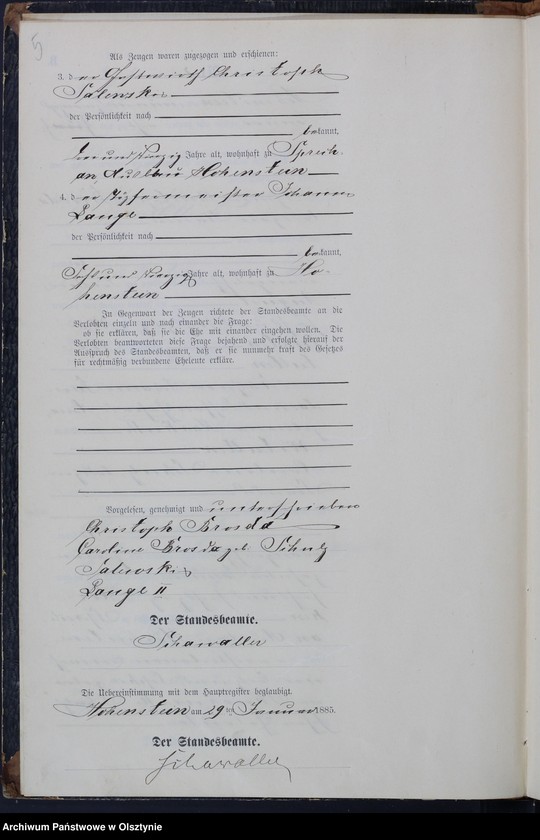 5
Als Zeugen waren zugezogen und erschienen:
3. der Gastwirth Christoph
Salewski
der Persönlichkeit nach
bekannt,
und vierzig Jahre alt, wohnhaft zu
Hohenstein
4. der Johann
Lange
der Persönlichkeit nach
bekannt,
Jahre alt, wohnhaft zu Ho-
henstein
In Gegenwart der Zeugen richtete der Standesbeamte an die
Verlobten einzeln und nach einander die Frage:
ob sie erklären, daß sie die Ehe mit einander eingehen wollen. Die
Verlobten beantworteten diese Frage bejahend und erfolgte hierauf der
Ausspruch des Standesbeamten, daß er sie nunmehr kraft des Gesetzes
für rechtmäßig verbundene Eheleute erkläre.
Vorgelesen, genehmigt und unterschrieben
Christoph Brosda
Caroline Brosda geb. Schulz
Salewski
Lange II
Der Standesbeamte.
Schawaller
Die Uebereinstimmung mit dem Hauptregister beglaubigt.
Hohenstein am 29 ten Januar 1885.
Der Standesbeamte.
Schawaller
Archiwum Państwowe w Olsztynie